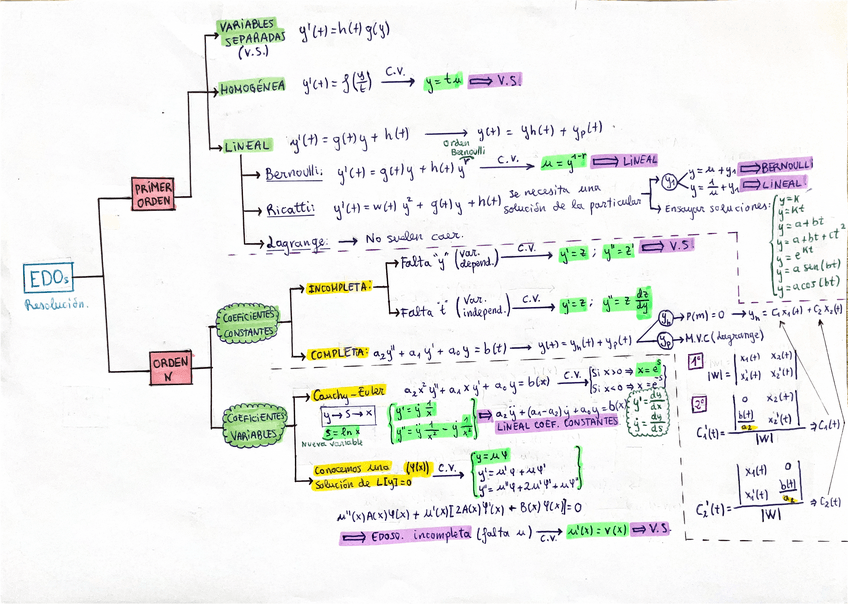 EDOs
Resolución.
PRIMER ORDEN
VARIABLES SEPARADAS (V.S.)
y'(t) = h(t) g(y)
HOMOGÉNEA
y'(t) = f(y/t) C.V. → y = t u ⟹ V.S.
LINEAL
y'(t) = g(t) y + h(t) → y(t) = yh(t) + yp(t)
Orden Bernoulli
→ Bernoulli: y'(t) = g(t) y + h(t) y^r C.V. → u = y^(1-r) ⟹ LINEAL
→ Ricatti: y'(t) = w(t) y² + g(t) y + h(t) Se necesita una solución de la particular
y₁
y = u + y₁ ⟹ BERNOULLI
y = 1/u + y₁ ⟹ LINEAL!
Ensayar soluciones:
y = K
y = Kt
y = a + bt
y = a + bt + ct²
y = e^Kt
y = a sen(bt)
y = a cos(bt)
→ Lagrange: → No suelen caer.
ORDEN N
COEFICIENTES CONSTANTES
INCOMPLETA:
Falta "y" (var. depend.) C.V. → y' = z ; y'' = z' ⟹ V.S.
Falta "t" (Var. independ.) C.V. → y' = z ; y'' = z dz/dy
COMPLETA: a₂y'' + a₁y' + a₀y = b(t) → y(t) = yh(t) + yp(t)
yh → P(m) = 0 → yh = C₁x₁(t) + C₂x₂(t)
yp → M.V.C (Lagrange)
1º
|W| = | x₁(t) x₂(t) |
| x₁'(t) x₂'(t) |
2º
C₁'(t) = | 0 x₂(t) |
| b(t)/a₂ x₂'(t) | / |W| ⟹ C₁(t)
C₂'(t) = | x₁(t) 0 |
| x₁'(t) b(t)/a₂ | / |W| ⟹ C₂(t)
COEFICIENTES VARIABLES
Cauchy-Euler a₂x²y'' + a₁xy' + a₀y = b(x) C.V. →
Si x>0 ⟹ x = e^s
Si x<0 ⟹ x = e^-s
y → s → x
s = ln x
Nueva variable
y' = ẏ 1/x
y'' = ÿ 1/x² − ẏ 1/x²
⟹ a₂ÿ + (a₁−a₂)ẏ + a₀y = b(x)
LINEAL COEF. CONSTANTES
y' = dy/dx
ẏ = dy/ds
Conocemos una (φ(x)) solución de L[y]=0 C.V. →
y = uφ
y' = u'φ + uφ'
y'' = u''φ + 2u'φ' + uφ''
u''(x)A(x)φ(x) + u'(x)[2A(x)φ'(x) + B(x)φ(x)] = 0
⟹ EDO2O. incompleta (falta u) C.V. → u'(x) = v(x) ⟹ V.S.